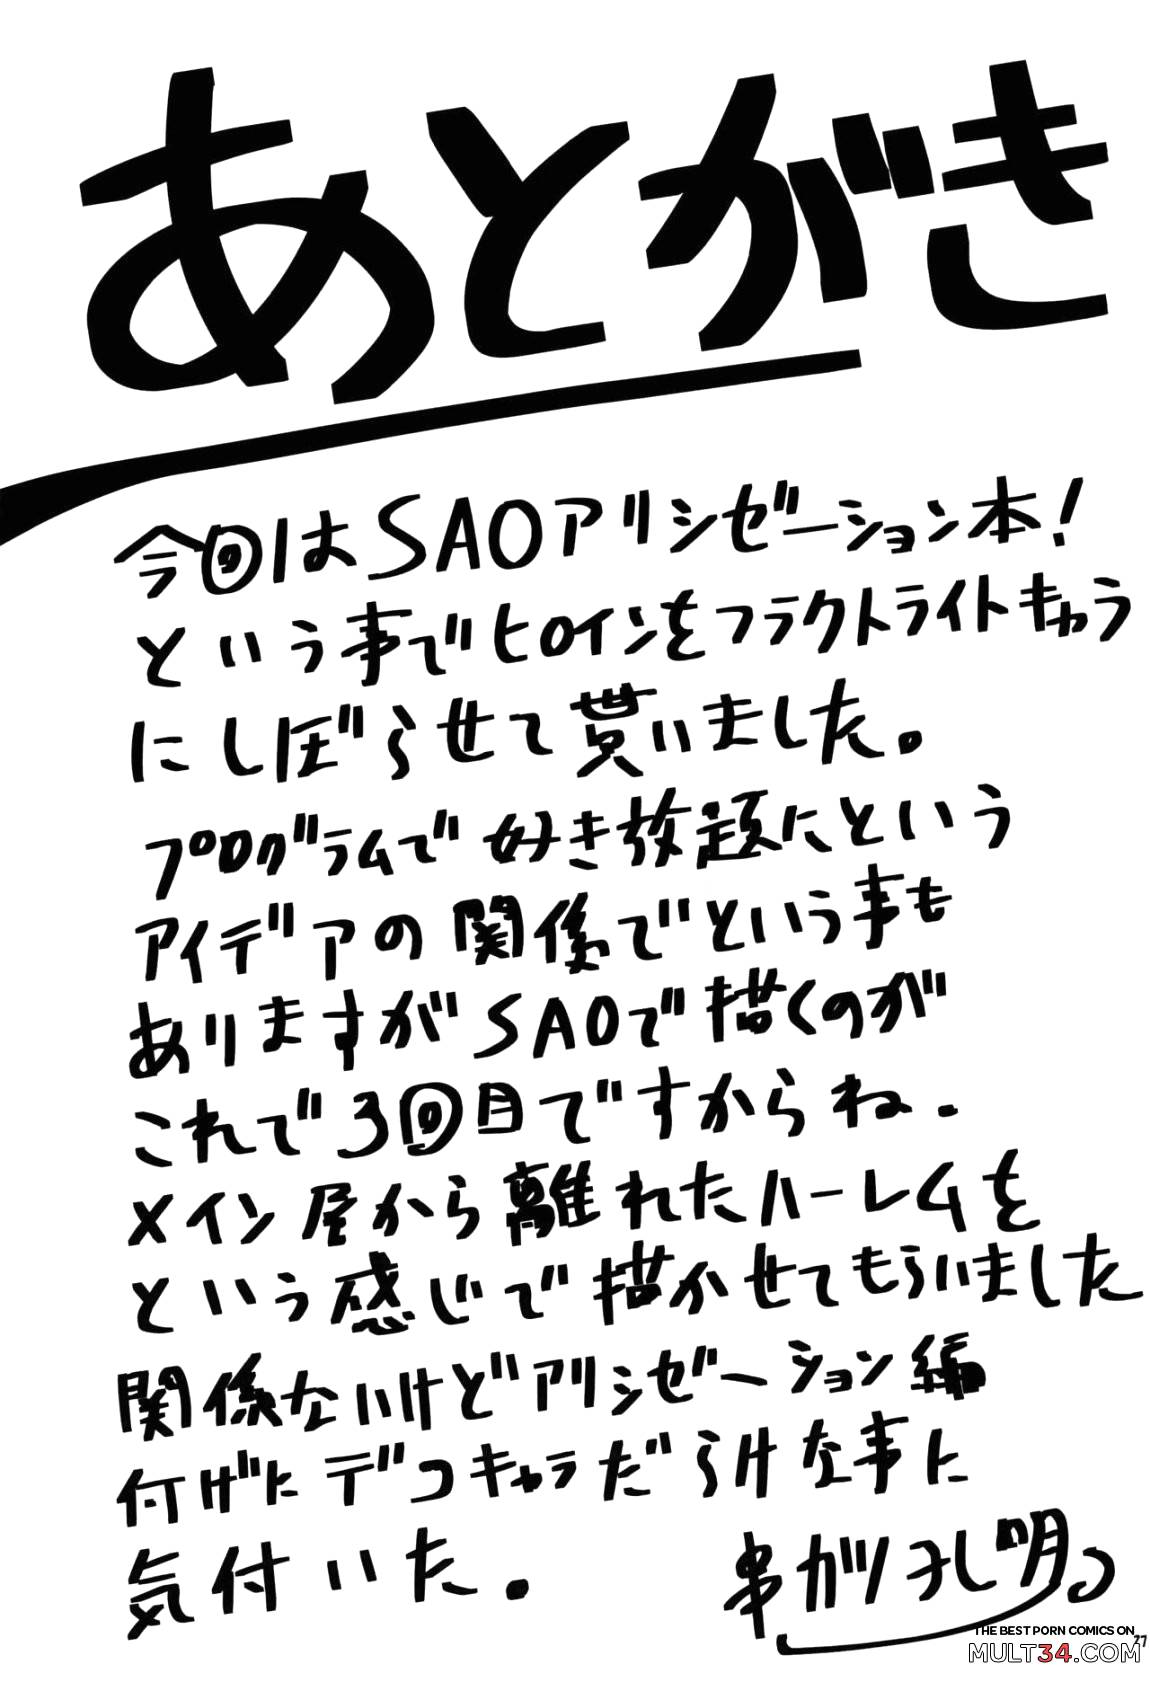 あとがき
今回はSAOアリシゼーション本!
という事でヒロインをフラクトライトキャラ
にしぼらせて貰いました。
プログラムで好き放題にという
アイデアの関係でという事も
ありますがSAOで描くのが
これで3回目ですからね.
メイン屋から離れたハーレムを
という感じで描かせてもらいました
関係ないけどアリシゼーション編
付げにデコキャラだらけな事に
気付いた.
串カツ孔明
THE BEST PORN COMICS ON
MULT34.COM
27